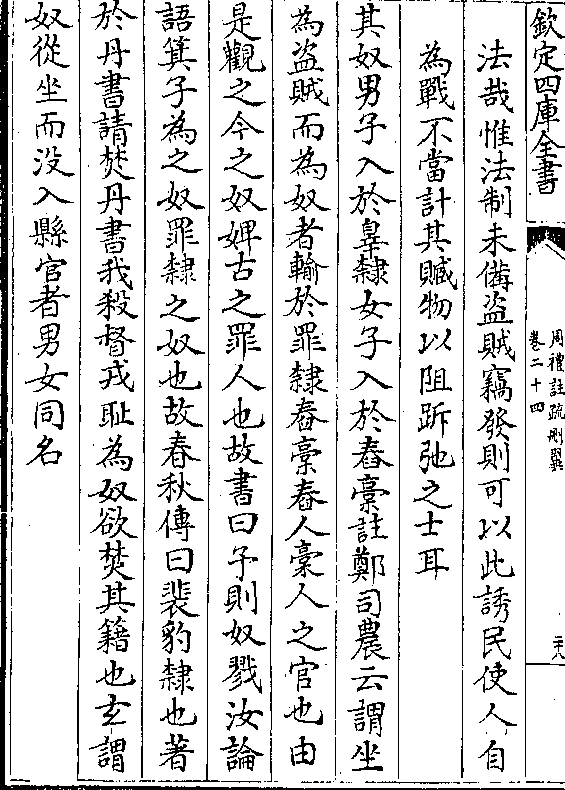 欽定四庫全書
周禮註疏刪翼
卷二十四
二十八
法哉惟法制未備盗賊竊發則可以此誘民使人自
為戰不當計其贓物以阻跅弛之士耳
其奴男子入於辠隸女子入於舂槀註鄭司農云謂坐
為盗賊而為奴者輸於罪隸舂槀舂人槀人之官也由
是觀之今之奴婢古之罪人也故書曰予則奴戮汝論
語箕子為之奴罪隸之奴也故春秋傳曰裴豹隸也著
於丹書請焚丹書我殺督戎耻為奴欲焚其籍也玄謂
奴從坐而没入縣官者男女同名